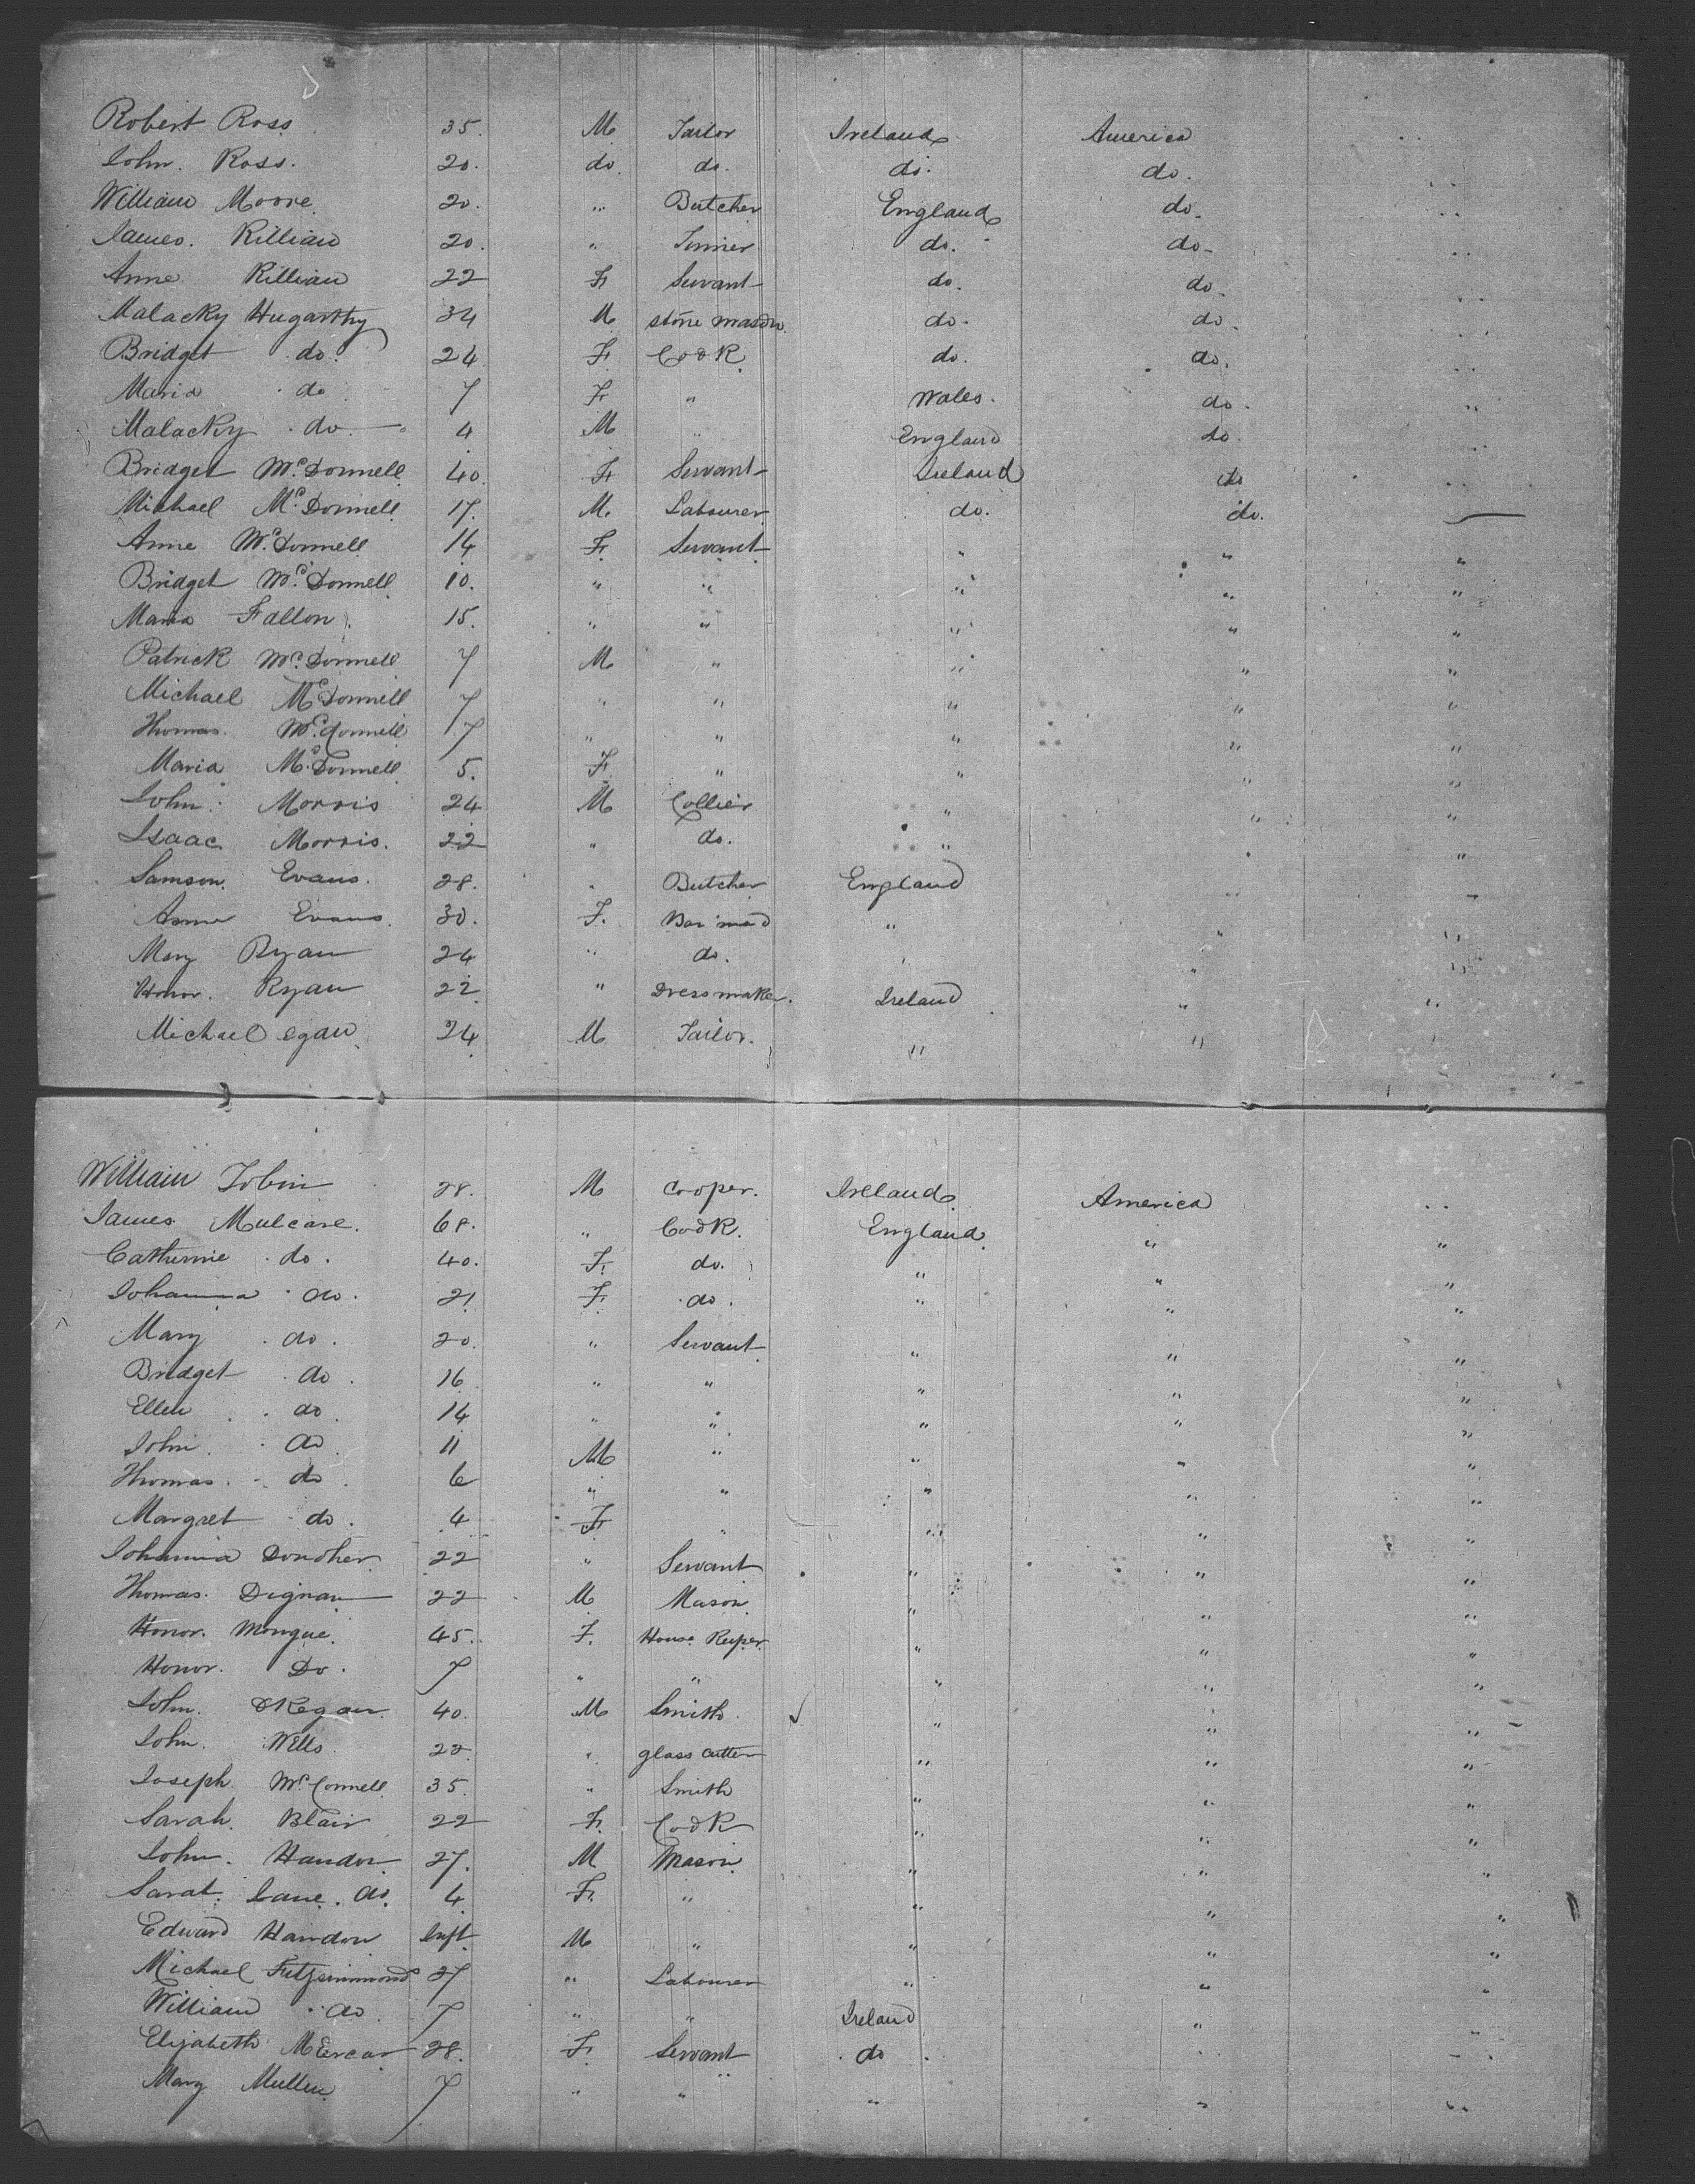 Robert Ross 35. M Tailor Ireland America
John. Ross. 20. do do. do. do.
William Moore 20. " Butcher England do.
James. Killian 20. " do. do
Anne Killian 22 F Servant do. do
Malacky Hugarthy 34 M stone mason do. do.
Bridget do. 24 F. Cook do. do.
Maria do 7 F " Wales. do.
Malacky do 4 M " England do.
Bridget McDonnell 40. F Servant Ireland do
Michael McDonnell 17. M. Labourer do. do.
Anne McDonnell 14 F. Servant " " "
Bridget McDonnell 10. " " " " "
Maria Fallon. 15. " " " " "
Patrick McDonnell 7 M " " " "
Michael McDonnell 7 " " " " "
Thomas. McDonnell 7 " " " " "
Maria McDonnell 5. F " " " "
John. Morris 24 M Collier " " "
Isaac Morris. 22 " do. " "
Samson. Evans. 28. " Butcher England " "
Anne Evans. 30. F. Bar maid " " "
Mary Ryan 24 " do. " " "
Honor. Ryan 22 " Dressmaker. Ireland " "
Michael egan 24 M Tailor. " "
William Tobin 28. M Cooper. Ireland America
James Mulcare. 68. " Cook. England. " "
Catherine do. 40. F. do. " " "
Johanna do. 21 F. do. " " "
Mary do. 20. " Servant " " "
Bridget do. 16 " " " " "
Ellen do. 14 " " " " "
John. do 11 M " " " "
Thomas. do 6 " " " " "
Margret do. 4 F " " " "
Johanna Donoher 22 " Servant " " "
Thomas. Dignan 22 M Mason " " "
Honor. Mongue. 45. F. House Keeper " " "
Honor. Do. 7 " " " " "
John. O'Regan. 40. M Smith. " " "
John. Wells 22. " glass cutter " " "
Joseph McConnell 35. " Smith " " "
Sarah. Blair 22 F. Cook " " "
John. Handon 27. M Mason " " "
Sarah. Jane. do. 4 F. " " " "
Edward Handon Inft M " " " "
Michael Fitzsimmond 27 " Labourer " " "
William do 7 " " Ireland " "
Elizabeth 28. F. Servant do. " "
Mary Mullen 7 " " " " "